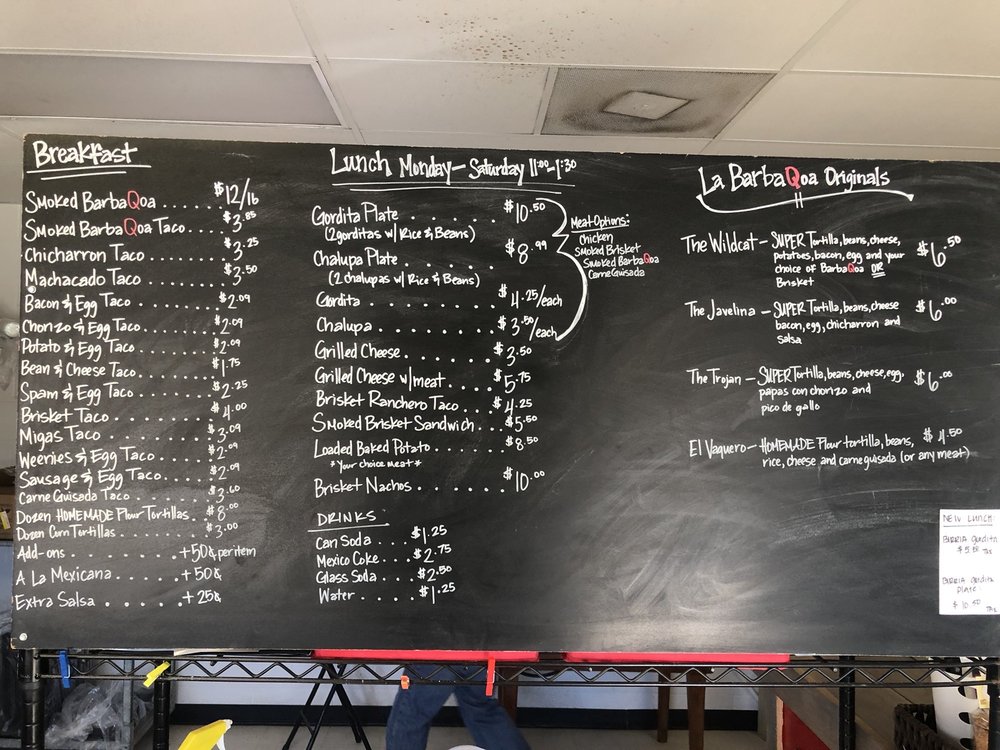 Breakfast
Smoked BarbaQoa ...... $12/16
Smoked BarbaQoa Taco .... $3.85
Chicharron Taco ....... $3.25
Machacado Taco ....... $2.50
Bacon & Egg Taco ....... $2.09
Chorizo & Egg Taco ....... $2.09
Potato & Egg Taco ....... $2.09
Bean & Cheese Taco ....... $1.75
Spam & Egg Taco ....... $2.25
Brisket Taco ....... $4.00
Migas Taco ....... $3.09
Weenies & Egg Taco ....... $2.09
Sausage & Egg Taco ....... $2.09
Carne Guisada Taco ....... $3.60
Dozen HOMEMADE Flour Tortillas .. $8.00
Dozen Corn Tortillas ....... $3.00
Add-ons ....... +50¢ per item
A La Mexicana ....... +50¢
Extra Salsa ....... +25¢
Lunch Monday - Saturday 11:00-1:30
Gordita Plate ....... $10.50
(2 gorditas w/ Rice & Beans)
Chalupa Plate ....... $8.99
(2 chalupas w/ Rice & Beans)
Gordita ....... $4.25/each
Chalupa ....... $3.50/each
Meat Options:
Chicken
Smoked Brisket
Smoked BarbaQoa
Carne Guisada
Grilled Cheese ....... $3.50
Grilled Cheese w/meat .... $5.75
Brisket Ranchero Taco ... $4.25
Smoked Brisket Sandwich ... $5.50
Loaded Baked Potato ....... $8.50
*Your choice meat*
Brisket Nachos ....... $10.00
DRINKS
Can Soda .... $1.25
Mexico Coke .... $2.75
Glass Soda ... $2.50
Water ..... $1.25
La BarbaQoa Originals
The Wildcat - SUPER Tortilla, beans, cheese, $6.50
potatoes, bacon, egg and your
choice of BarbaQoa OR
Brisket
The Javelina - SUPER Tortilla, beans, cheese $6.00
bacon, egg, chicharron and
salsa
The Trojan - SUPER Tortilla, beans, cheese, egg, $6.00
papas con chorizo and
pico de gallo
El Vaquero - HOMEMADE Flour tortilla, beans, $4.50
rice, cheese and carne guisada (or any meat)
NEW LUNCH
BIRRIA Gordita
$5.50 TAX
BIRRIA Gordita
PLATE
$10.50 TAX